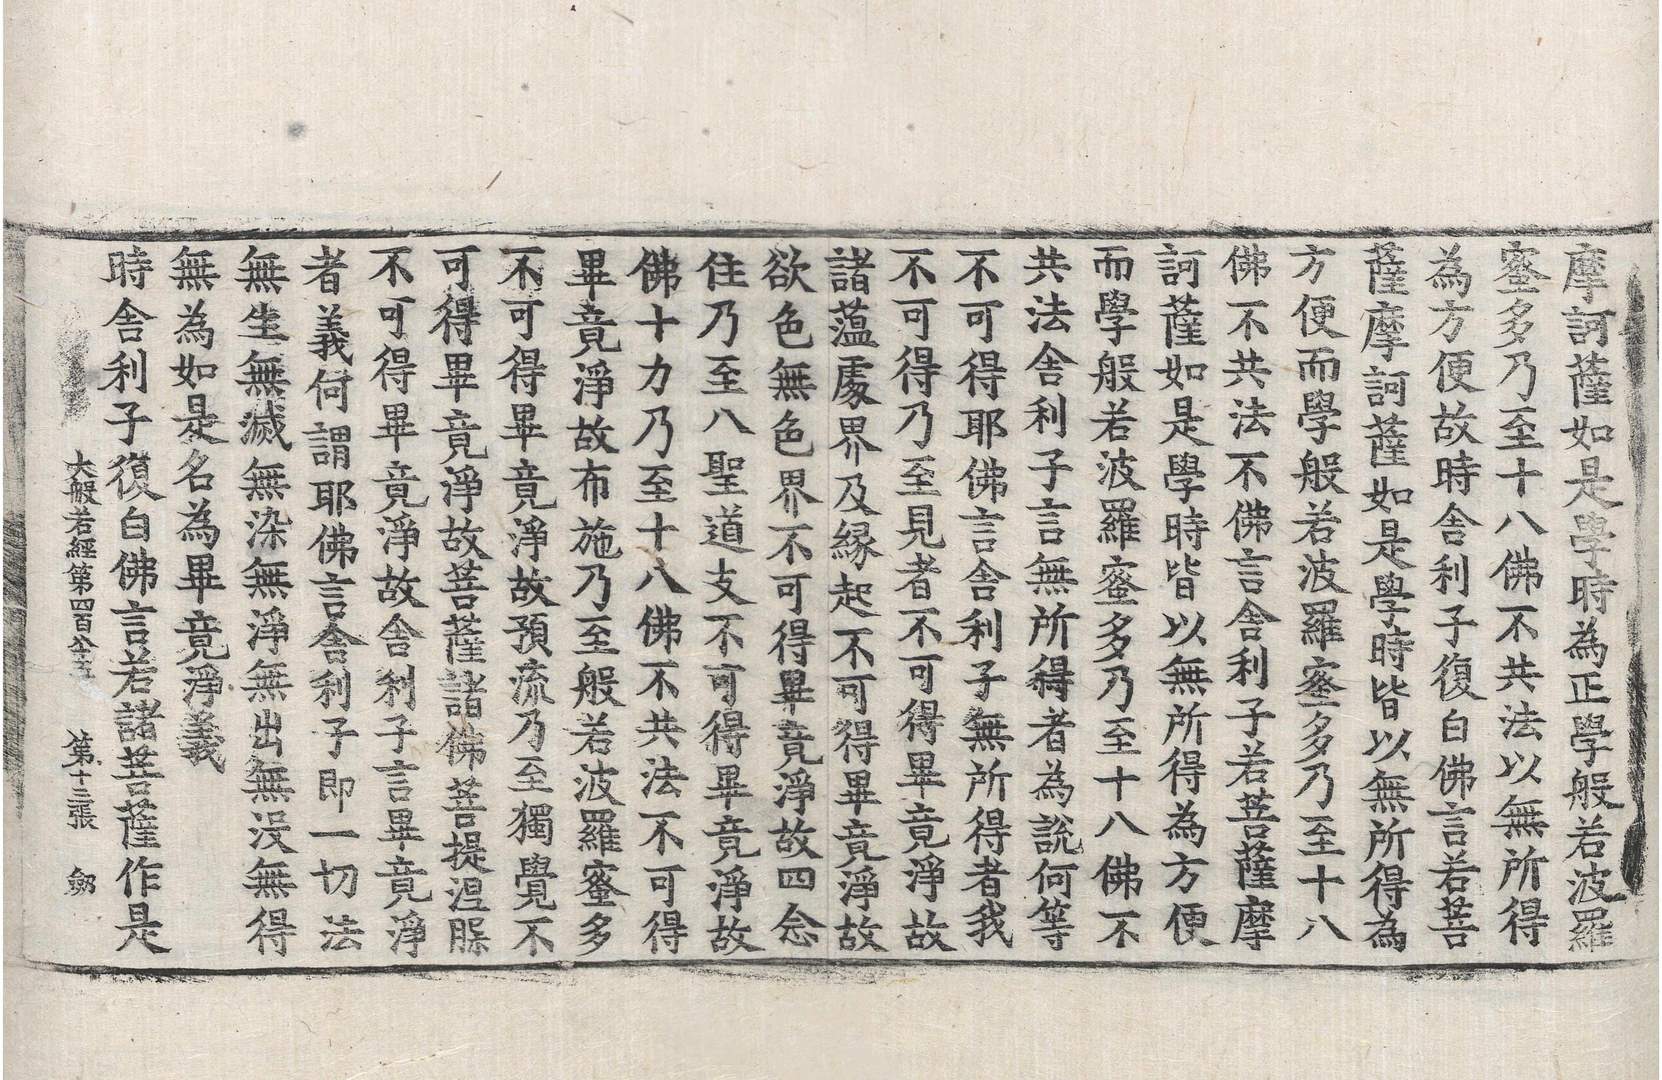 摩訶薩如是學時為正學般若波羅
蜜多乃至十八佛不共法以無所得
為方便故時舍利子復白佛言若菩
薩摩訶薩如是學時皆以無所得為
方便而學般若波羅蜜多乃至十八
佛不共法不佛言舍利子若菩薩摩
訶薩如是學時皆以無所得為方便
而學般若波羅蜜多乃至十八佛不
共法舍利子言無所得者為說何等
不可得耶佛言舍利子無所得者我
不可得乃至見者不可得畢竟淨故
諸蘊處界及緣起不可得畢竟淨故
欲色無色界不可得畢竟淨故四念
住乃至八聖道支不可得畢竟淨故
佛十力乃至十八佛不共法不可得
畢竟淨故布施乃至般若波羅蜜多
不可得畢竟淨故預流乃至獨覺不
可得畢竟淨故菩薩諸佛菩提涅槃
不可得畢竟淨故舍利子言畢竟淨
者義何謂耶佛言舍利子即一切法
無生無滅無染無淨無出無沒無得
無為如是名為畢竟淨義
時舍利子復白佛言若諸菩薩作是
大般若經第四百八十五 第十三張 劒